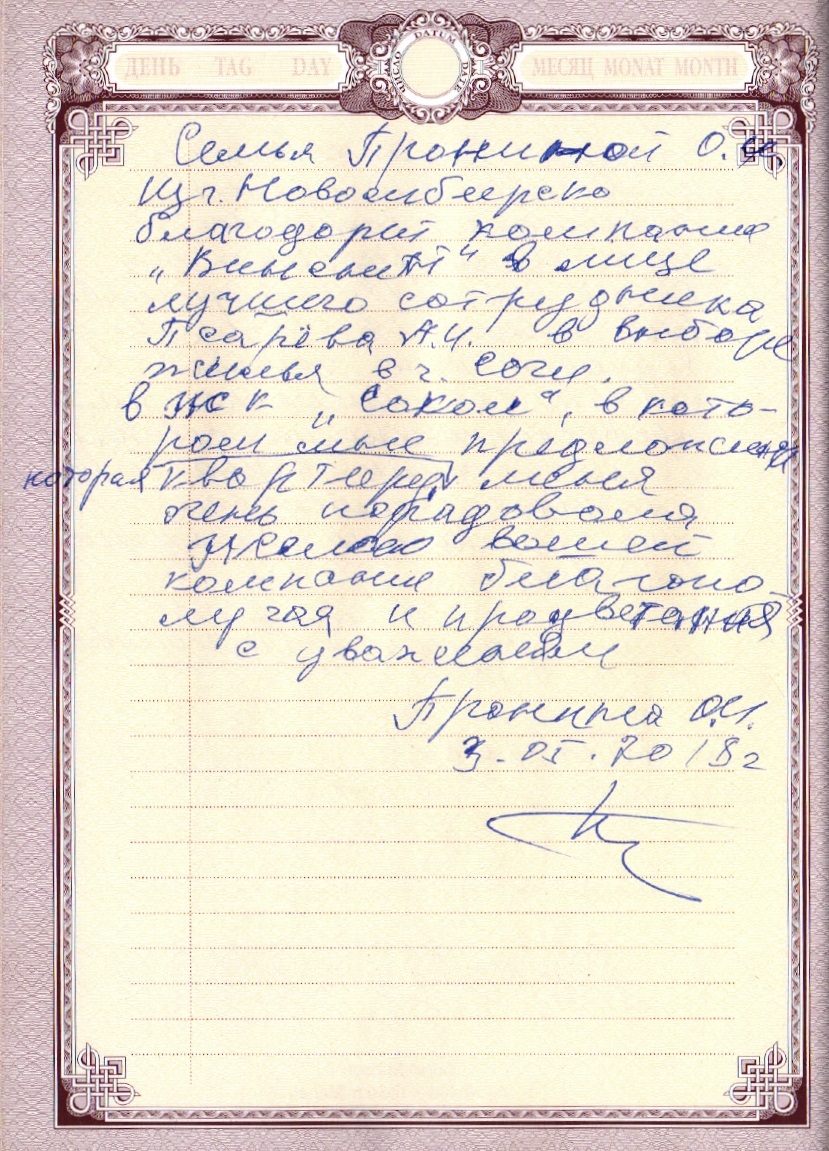 ДЕНЬ TAG DAY
DATUM DATE
МЕСЯЦ MONAT MONTH
Семья Прониной О.И
Из г. Новосибирска
благодарит компание
„Винсент" в лице
лучшего сотрудника
Псарёва А.И. в выборе
жилья в г. Сочи.
в жск „Сокол", в кото-
ром мне предложили
которая квартиру меня
очень порадовала
Желаю вашей
компание благопо-
лучая и процветания
с уважением
Пронина О.И.
3. VI. 2018г